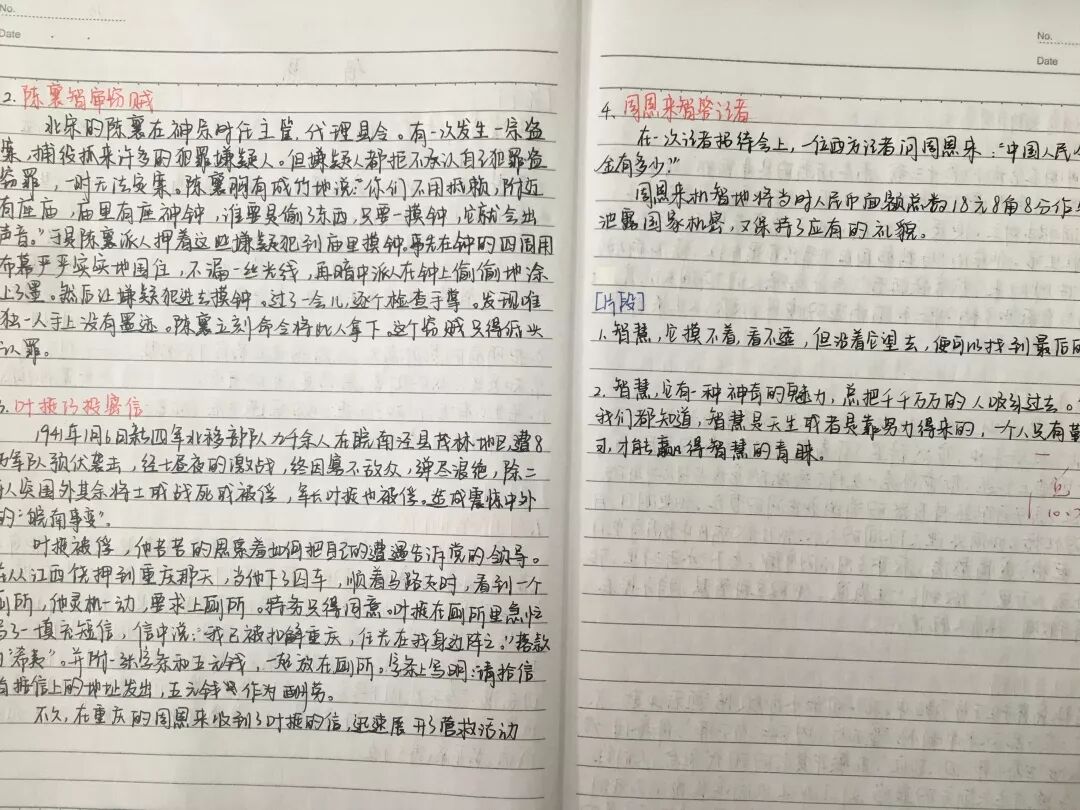 No.
Date
2. 陈襄智审窃贼
北宋的陈襄在神宗时任主管,代理县令。有一次发生一宗盗
案,捕役抓来许多的犯罪嫌疑人。但嫌疑人都拒不承认自己犯罪盗
窃罪,一时无法定案。陈襄胸有成竹地说:“你们不用抵赖,附近
有座庙,庙里有座神钟,谁要是偷了东西,只要一摸钟,它就会出
声音。”于是陈襄派人押着这些嫌疑犯到庙里摸钟。事先在钟的四周用
布幕严严实实地围住,不漏一丝光线,再暗中派人在钟上偷偷地涂
上了墨。然后让嫌疑犯进去摸钟。过了一会儿,逐个检查手掌。发现唯
独一人手上没有墨迹。陈襄立刻命令将此人拿下。这个窃贼只得低头
认罪。
3. 叶挺巧投密信
1941年1月6日新四军北移部队九千余人在皖南泾县茂林地区,遭8
万军队预伏袭击,经七昼夜的激战,终因寡不敌众,弹尽粮绝,除二
人突围外其余将士或战死或被俘,军长叶挺也被俘。造成震惊中外
的“皖南事变”。
叶挺被俘,他苦苦的思索着如何把自己的遭遇告诉党的领导。
在从江西侥押到重庆那天,当他下了囚车,顺着马路走时,看到一个
厕所,他灵机一动,要求上厕所。特务只得同意。叶挺在厕所里急忙
写了一填充短信,信中说:“我已被押解重庆,住光在我身边阵之。”落款
“希夷”。并附一张字条和五元钱,一起放在厕所。字条上写明:请拾信
者按信上的地址发出,五元钱作为酬劳。
不久,在重庆的周恩来收到了叶挺的信,迅速展开了营救活动
No.
Date
4. 周恩来智答记者
在一次记者招待会上,一位西方记者问周恩来:“中国人民
金有多少?”
周恩来机智地将当时人民币面额总数18元8角8分作
泄露国家机密,又保持了应有的礼貌。
[片段]
1. 智慧,它摸不着,看不透,但沿着它望去,便可以找到最后的
2. 智慧,它有一种神奇的魅力,总把千千万万的人吸引过去。
我们都知道,智慧是天生或者是靠努力得来的,一个人只有
习,才能赢得智慧的青睐。